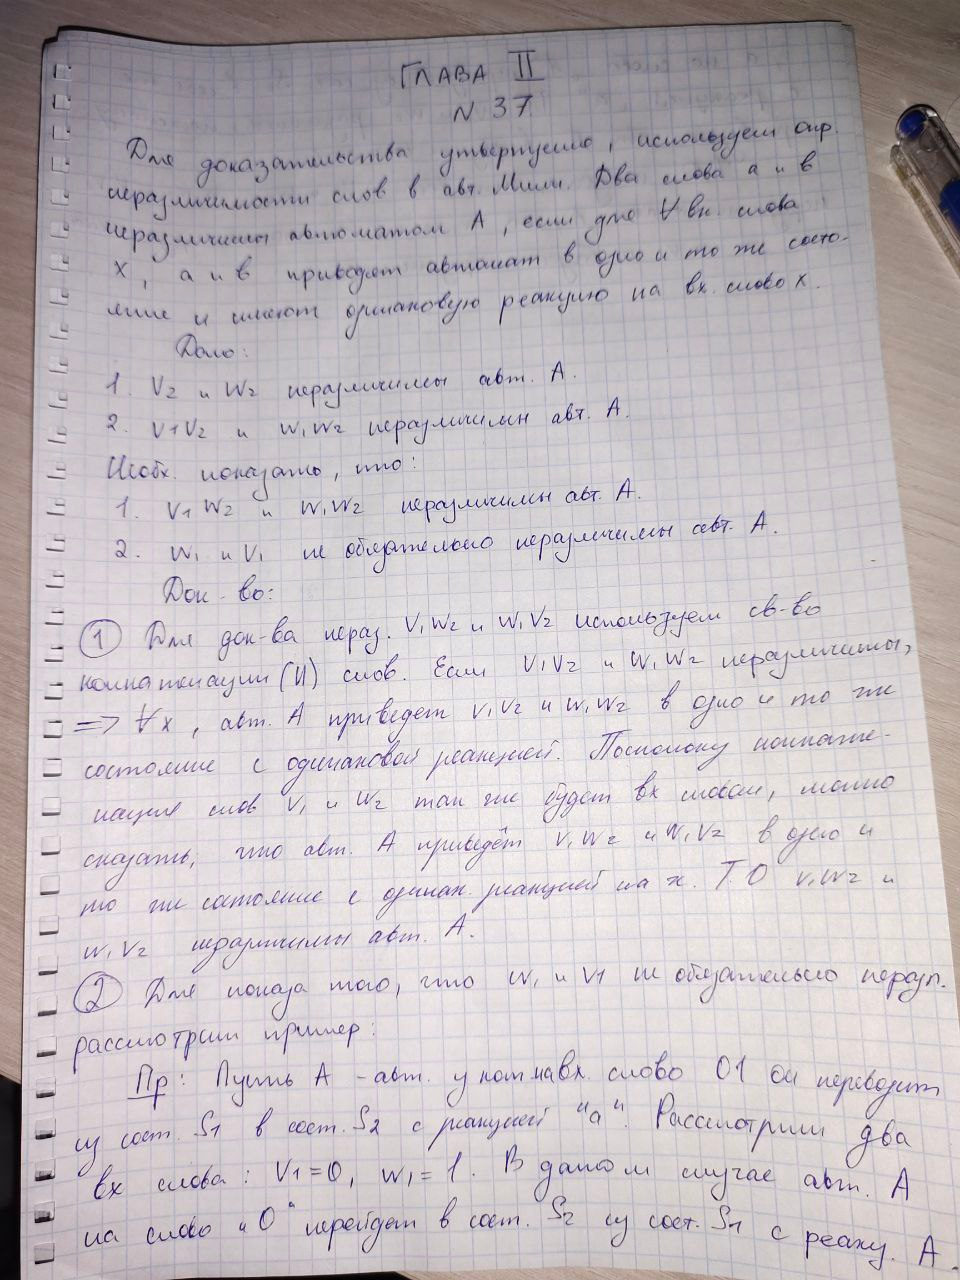 Глава II
N 37.
Для доказательства утвержденно, используем опр.
неразличимости слов в авт. Мили. Два слова a и b
неразличимы автоматом A, если для ∀ вх. слова
X, a и b приводят автомат в одно и то же состо-
яние и имеют одинаковую реакцию на вх. слово X.
Дано:
1. V2 и W2 неразличимы авт. A.
2. V1V2 и W1W2 неразличимы авт. A.
Необх. показать, что:
1. V1W2 и W1W2 неразличимы авт. A.
2. W1 и V1 не обязательно неразличимы авт. A.
Док-во:
① Для док-ва нераз. V1W2 и W1V2 используем св-во
конкатенации (И) слов. Если V1V2 и W1W2 неразличимы,
=> ∀x, авт. A приведет V1V2 и W1W2 в одно и то же
состояние с одинаковой реакцией. Поскольку конкате-
нация слов V1 и W2 так же будет вх словом, можно
сказать, что авт. A приведёт V1W2 и W1V2 в одно и
то же состояние с одинак. реакцией на x. Т.О V1W2 и
W1V2 авт. A.
② Для показа того, что W1 и V1 не обязательно неразл.
рассмотрим пример:
Пр: Пусть A - авт. у кот на вх. слово 01 он переводит
из сост. S1 в сост. S2 с реакцией "a". Рассмотрим два
вх слова: V1=0, W1=1. В данном случае авт. A
на слово "0" перейдет в сост. S2 из сост. S1 с реакц. A.